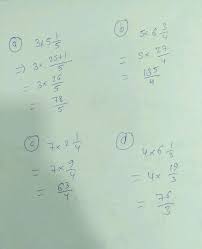 (a) 3×5 1/5
=> 3× 25+1/5
= 3× 26/5
= 78/5
(b) 5×6 3/4
= 5× 27/4
= 135/4
(c) 7×2 1/4
= 7× 9/4
= 63/4
(d) 4×6 1/3
= 4× 19/3
= 76/3